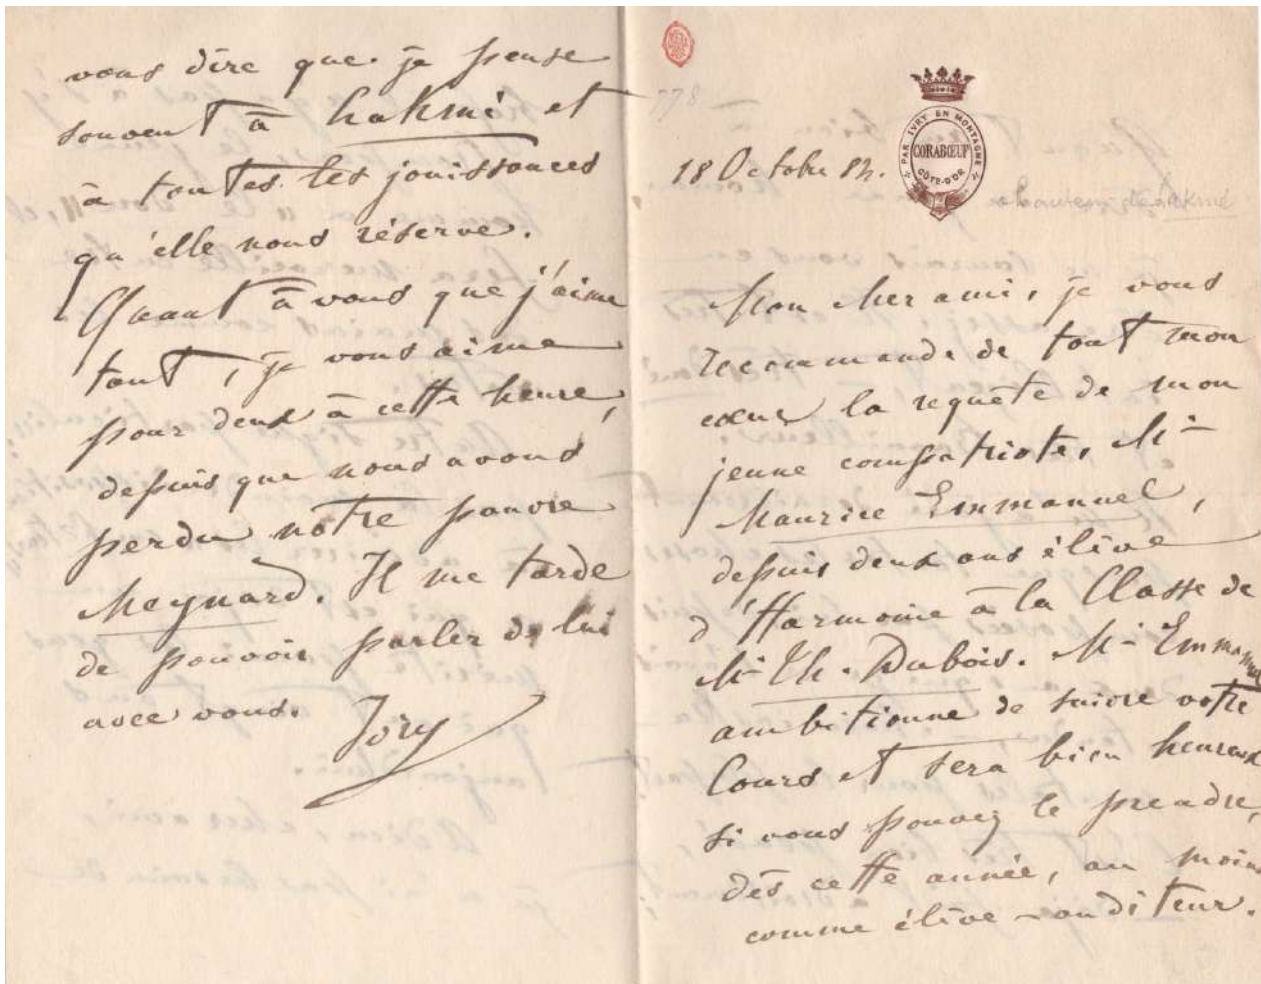 vous dire que je pense
souvent à Lakmé et
à toutes les jouissances
qu'elle nous réserve.
Quant à vous que j'aime
tant, je vous aime
pour deux à cette heure,
depuis que nous avons
perdu notre pauvre
Meynard. Il me tarde
de pouvoir parler de lui
avec vous.
Ivry
778
PAR IVRY EN MONTAGNE
CORABŒUF
CÔTE-D'OR
18 Octobre 82.
Mon cher ami, je vous
recommande de tout mon
cœur la requête de mon
jeune compatriote, Mr
Maurice Emmanuel,
depuis deux ans élève
d'Harmonie à la Classe de
Mr Th. Dubois. Mr Emmanuel
ambitionne de suivre votre
Cours et sera bien heureux
si vous pouvez le prendre,
dès cette année, au moins
comme élève-auditeur.